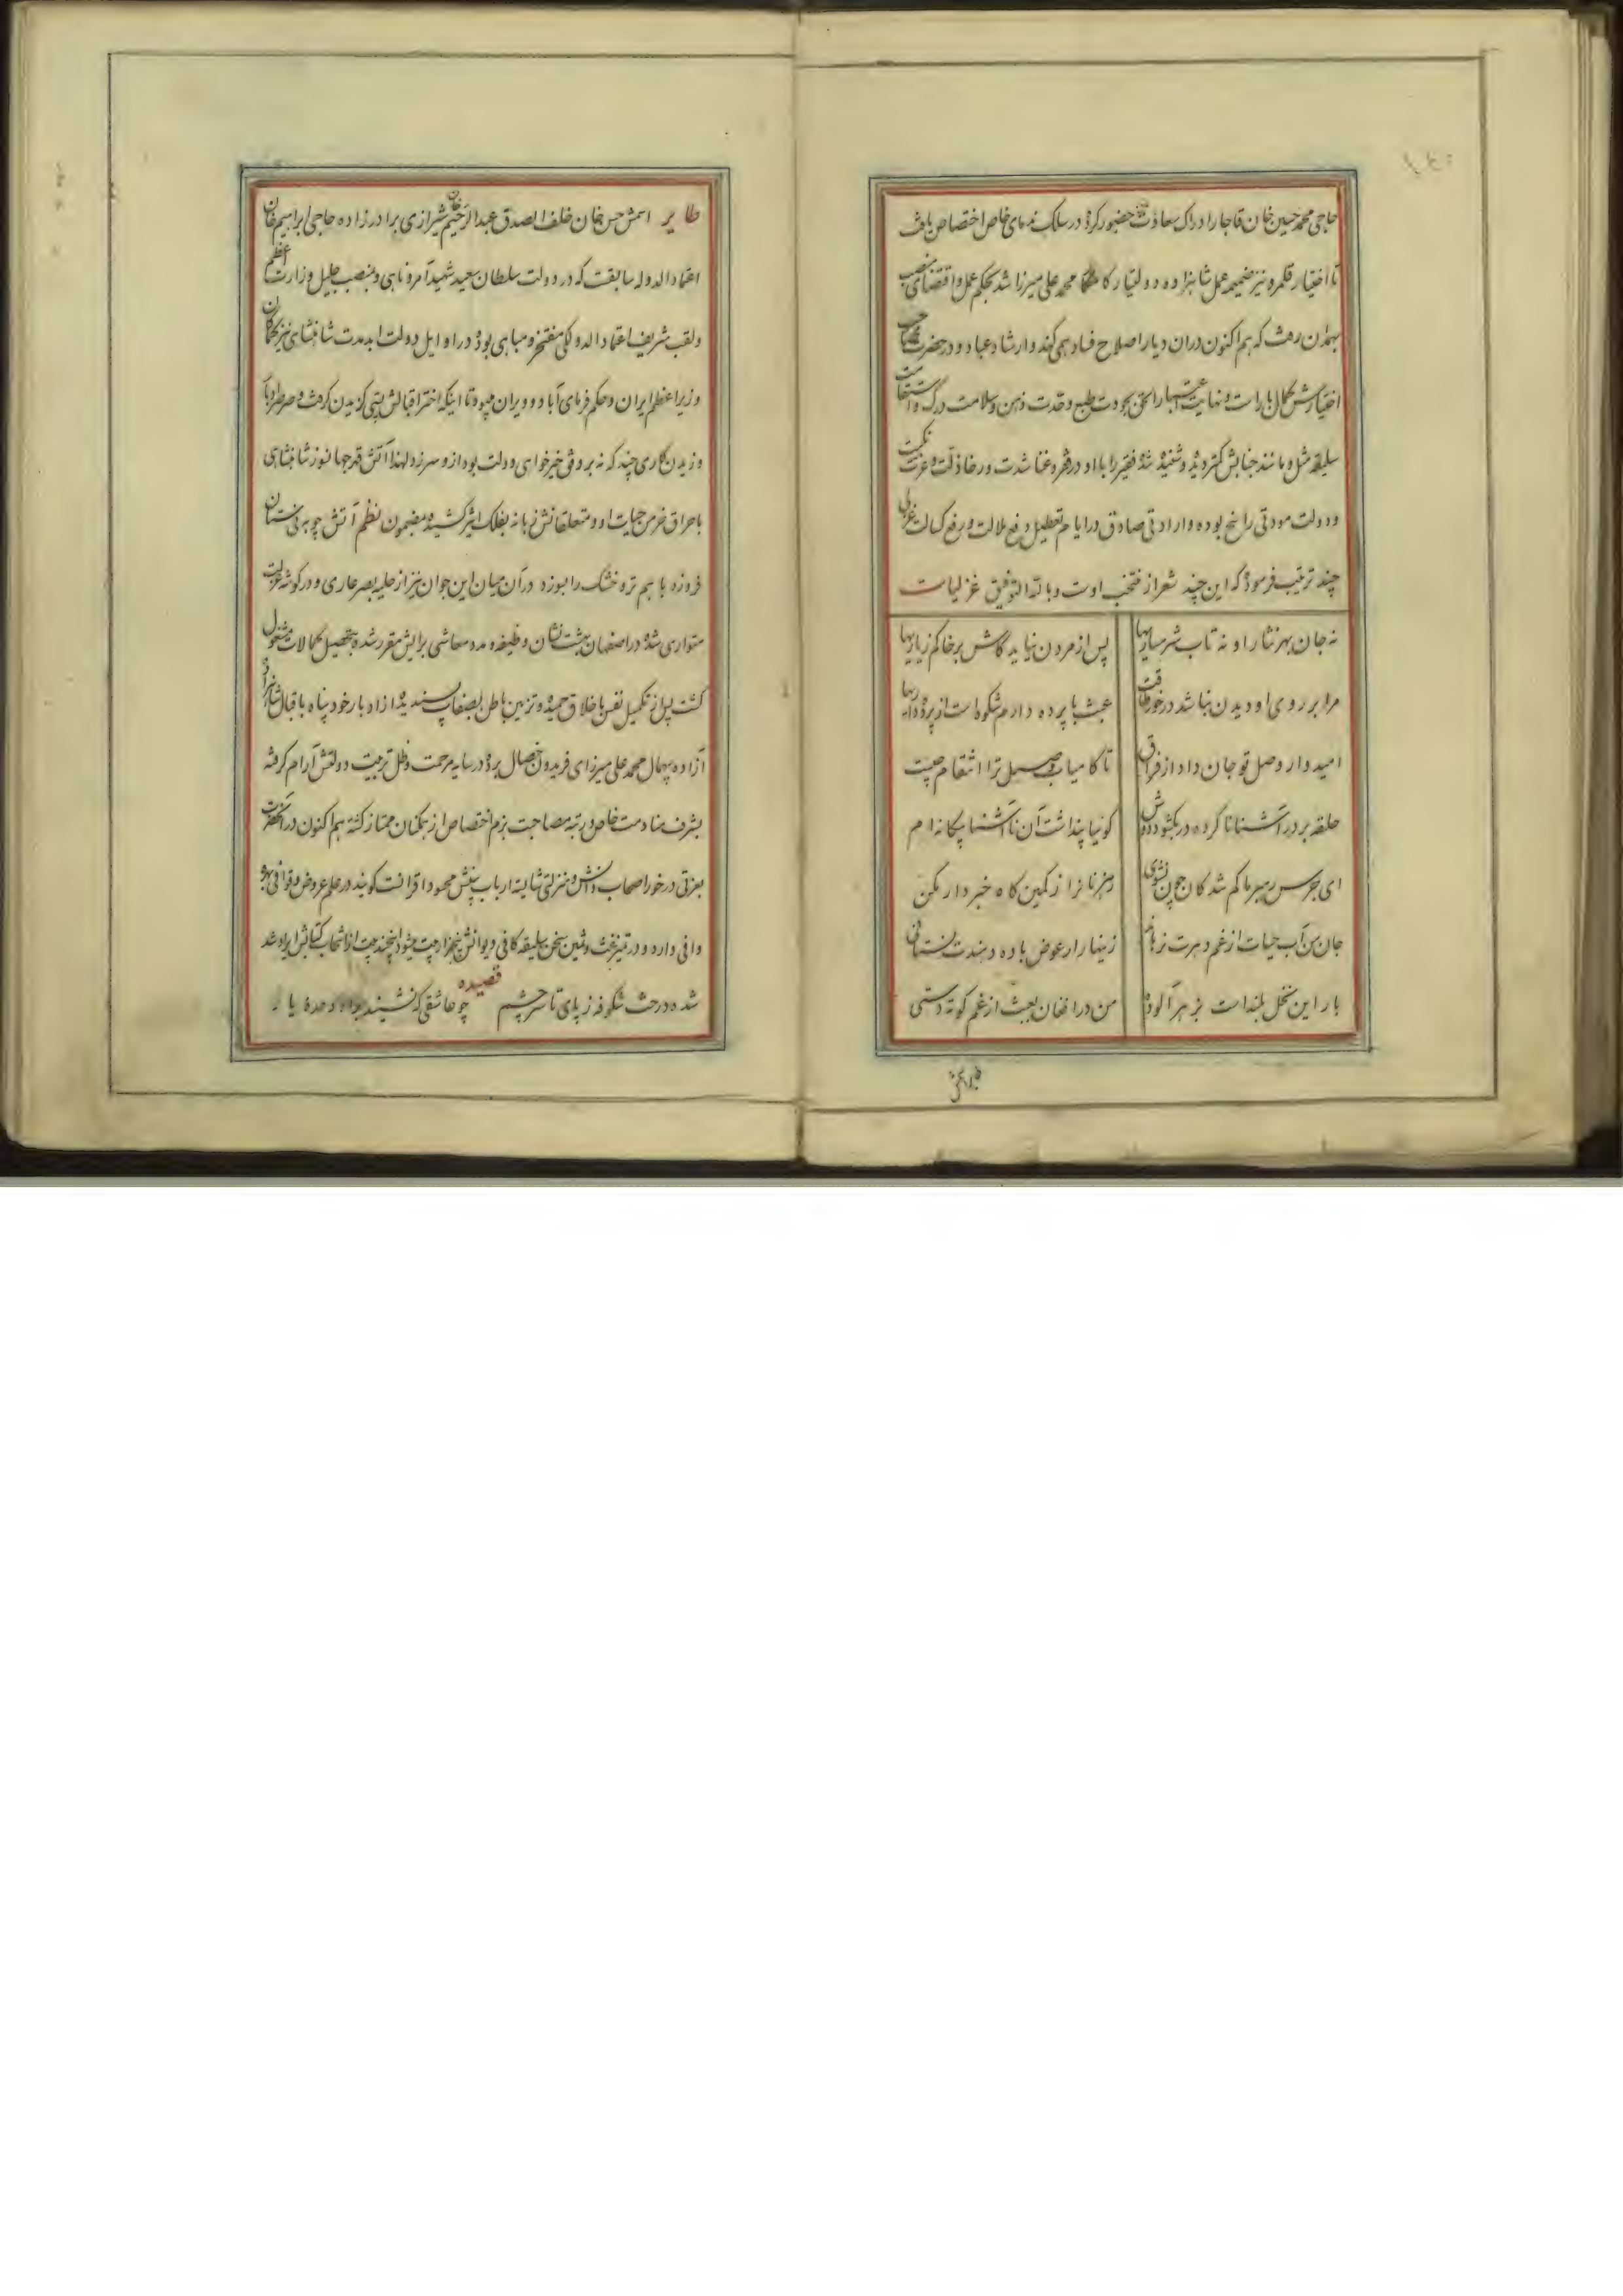 حاجی محمد حسین خان قاجار ادراک سعادت حضور کرده در سلک ندمای خاص اختصاص یافت
تا اختیار قلمرو نیز ضمیمه عمل شاهزاده دولتیار محمد علی میرزا شد بحکم عمل و اقتضای منصب
بهمدان رفت که هم اکنون دران دیار اصلاح فساد همی کند و ارشاد عباد و در حضرت صاحب
اختیارش کمال بار است و نهایت اعتبار الحق بجودت طبع و حدت ذهن و سلامت درک و استقامت
سلیقه مثل و مانند جنابش کمتر دیده و شنیده شده فقیر را با او در فقر و غنا شدت و رخا ذلت و عزت نکبت
و دولت مودتی راسخ بوده و ارادتی صادق در ایام تعطیل و رفع ملالت و رفع کسالت غزلی
چند ترتیب فرموده که این چند شعر از منتخب اوست و بالله التوفیق غزلیات
نه جان بهر نثار او نه تاب شرمساریها پس از مردن نیاید کاش بر خاکم زیاریها
مرا بر روی او دیدن نباشد در خور طاقت عبث با پرده دارم شکوه‌است از پرده‌داریها
امیدوار وصل تو جان داد از فراق تا کامیاب وصل ترا انتقام چیست
حلقه بر در آشنانا کرده در بگشودش گوئیا پنداشت آن ناآشنا بیگانه‌ام
ای جرس رهبر ما گم شد کان چون نشوی رهزنانرا ز کمین گاه خبردار مکن
جان من آب حیات از غم دهرت نرهاند زینهار ار عوض باده دهندت نستانی
بار این نخل بلند است بزهر آلوده من در افغان بعبث از غم کوته‌دستی
طایر اسمش حسن خان خلف الصدق عبدالرحیم خان شیرازی برادرزاده حاجی ابراهیم خان
اعتمادالدوله سابقست که در دولت سلطان سعید شهید آمر و ناهی و بمنصب جلیل وزارت اعظم
و لقب شریف اعتماد الدولگی مفتخر و مباهی بوده در اوایل دولت ابدمدت شاهنشاهی نیز کماکان
وزیر اعظم ایران و حکم فرمای آباد و ویران میبود تا اینکه اختر اقبالش پستی گزیدن گرفت و صرصر ادبار
وزیدن کاری چند که نه بر وفق خیرخواهی دولت بود ازو سرزد لهذا آتش قهر جهانسوز شاهنشاهی
باحراق خرمن حیات او و متعلقانش زبانه بفلک اثیر کشیده مضمون نظم آتش چو به نیستان
فروزد با هم تر و خشک را بسوزد در آن میان این جوان نیز از حلیه بصر عاری و در گوشه عزلت
متواری شده در اصفهان بهشت نشان وظیفه و مدد معاشی برایش مقرر شده بتحصیل کمالات مشغول
گشت پس از تکمیل نفس باخلاق حمیده و تزیین باطن بصفات پسندیده از ادبار خود پناه باقبال شاهزاده
آزاده بیهمال محمد علی میرزای فریدون خصال برده در سایه مرحمت و ظل تربیت دولتش آرام گرفته
بشرف منادمت خاص و رتبه مصاحبت بزم اختصاص از همگنان ممتاز گشته هم اکنون در آنحضرت
بعزتی در خور اصحاب دانش و منزلتی شایسته ارباب بینش محسود اقرانست گویند در علم عروض و قوافی بهره
وافی دارد و در تمیز غث و ثمین سخن سلیقه کافی دیوانش پنجهزار بیت میشود اینچند بیت از انتخاب کتابش ایراد شد
قصیده
شده درخت شکوفه ز پای تا سر چشم چو عاشقی که نشیند براه وعده یار
شده درخت